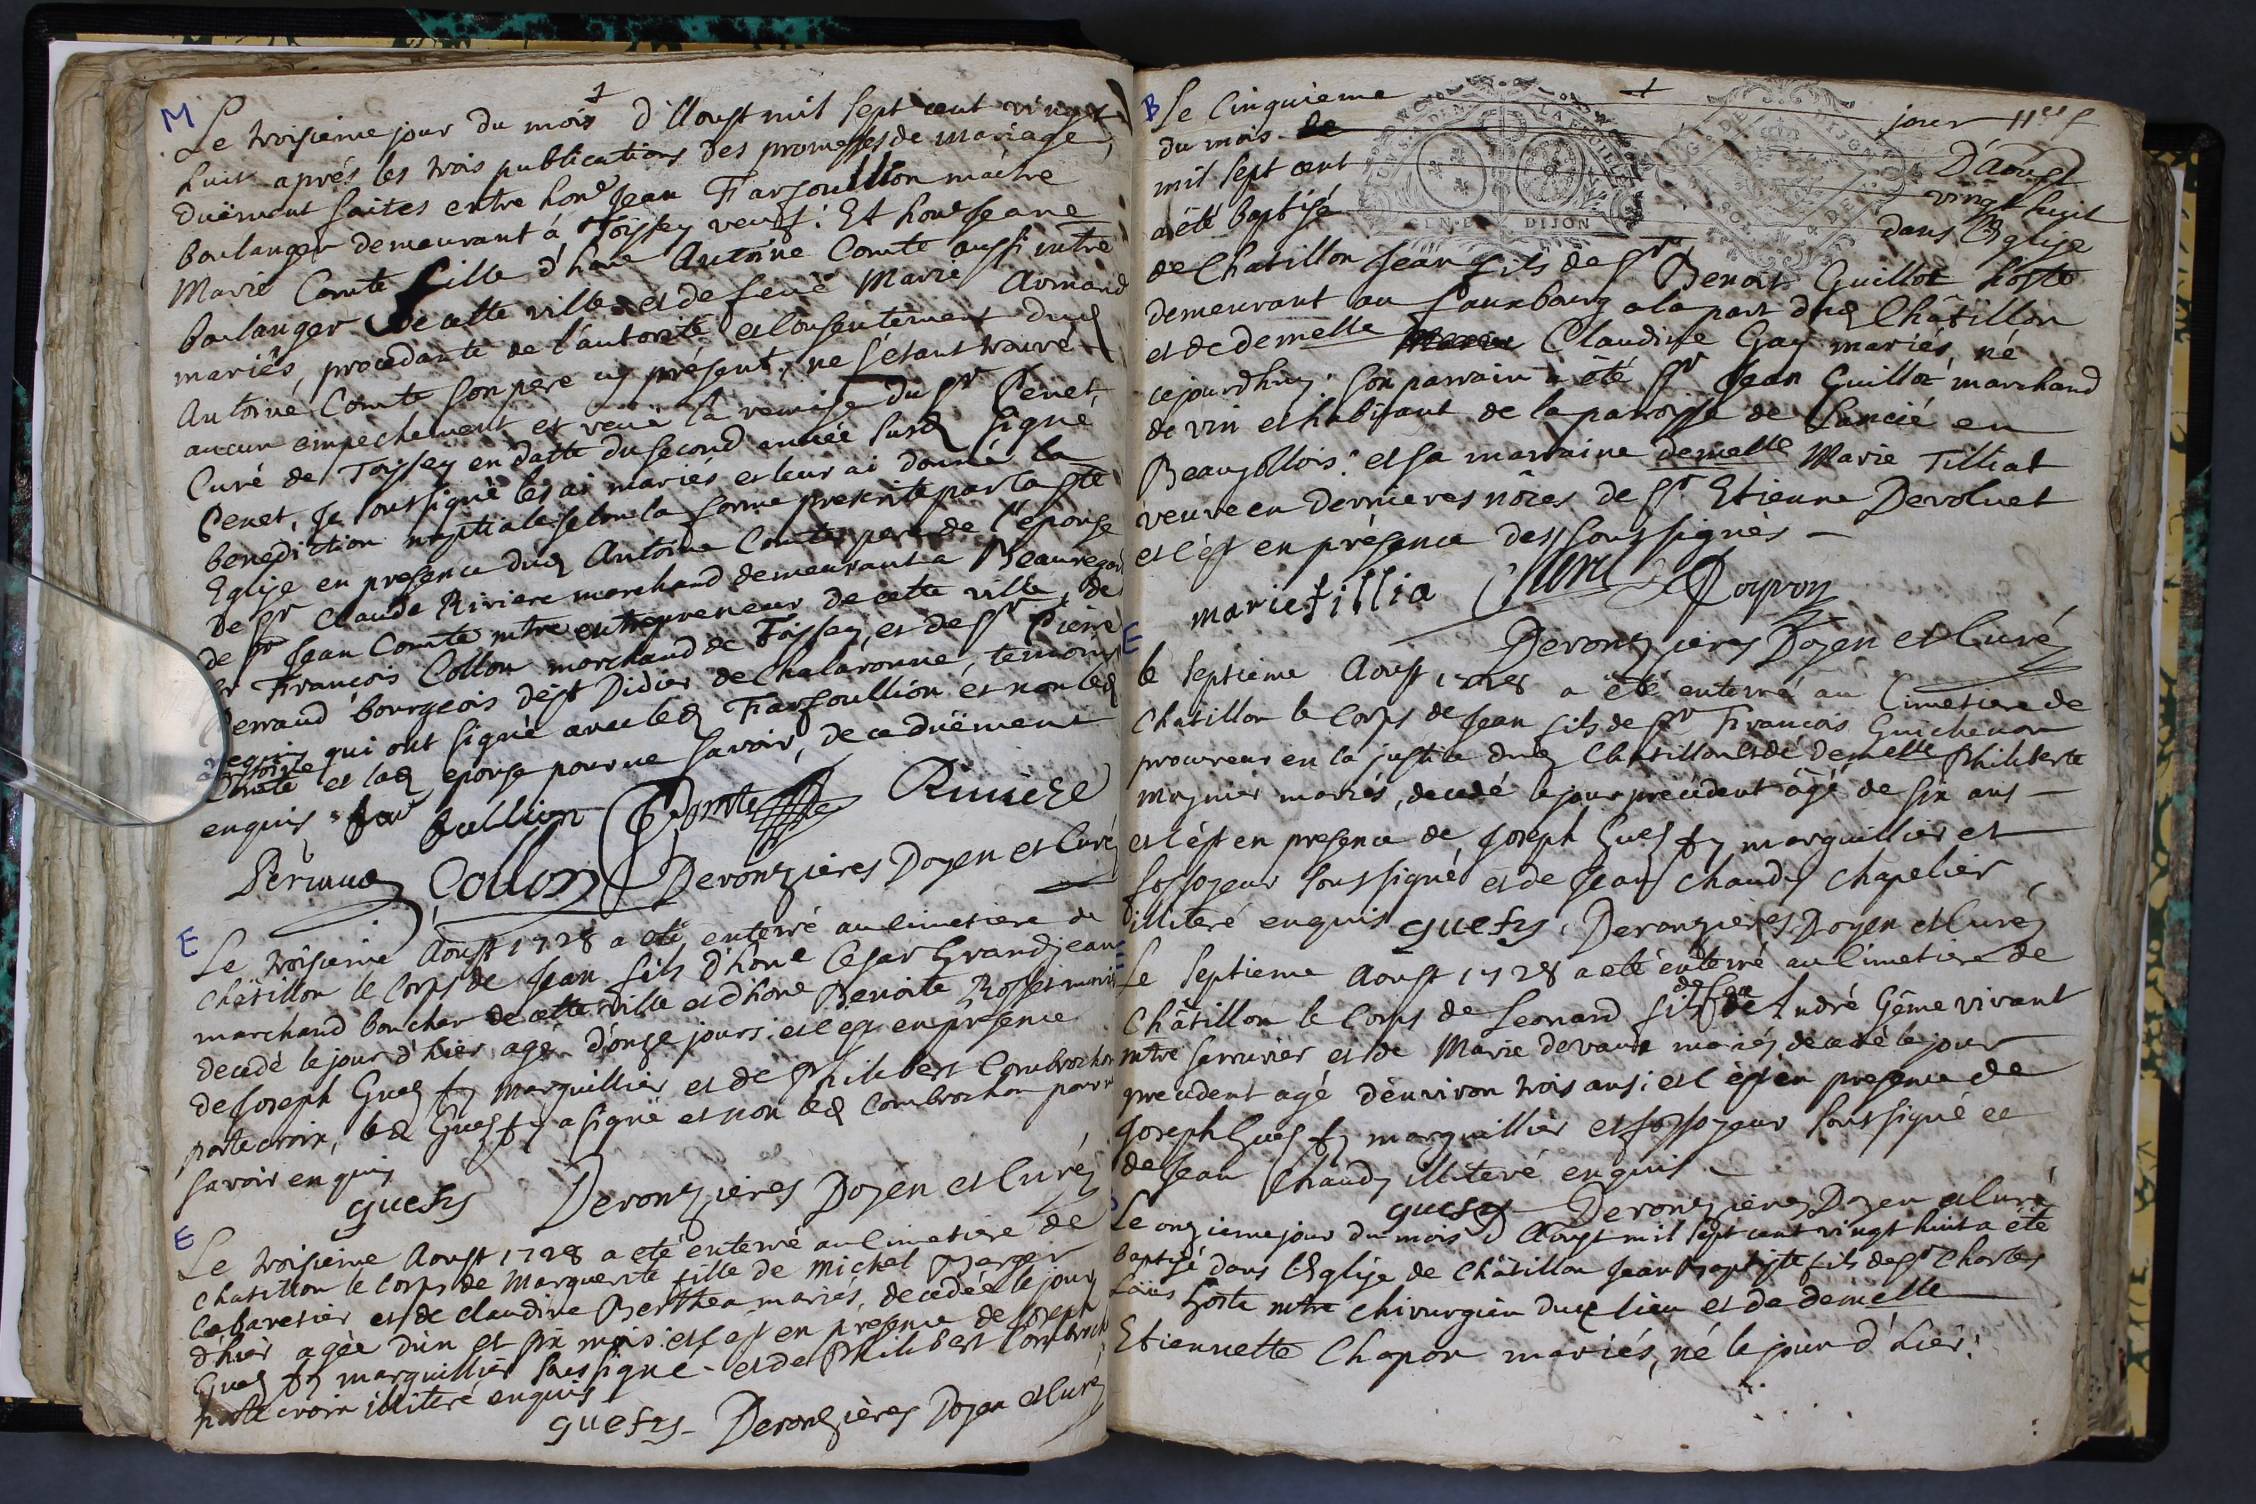 M
Le troisieme jour du mois d'Aoust mil sept cent vingt
huit aprés les trois publications des promesses de mariage,
duëment faites entre hone Jean Farfoullion maitre
boulanger demeurant á Toissey veuf: Et hone Jeane
Marie Comte fille d'hone Antoine Comte aussi mtre
boulanger de cette ville et de feuë Marie Armand
mariés, procedante de l'autorité et consentement dud
Antoine Comte son pere cy présent, ne s'étant trouvé
aucun empechement et veuë la remise du Sr Penet,
Curé de Toissey en datte du second année susd signé
Penet, Je soussigné les ai mariés et leur ai donné la
benediction nuptiale selon la forme prescrite par la Ste
Eglise en presence dud Antoine Comte pere de l'epouse
de Sr Claude Riviere marchand demeurant a Beauregard
de Sr Jean Comte mtre entrepreneur de cette ville, de
Sr François Collon marchand de Toissey, et de Sr Pierre
Perraud bourgeois de St Didier de Chalaronne, temoins
requis qui ont signé avec led Farfoullion et non led
Antoine
Comte et lad epouse pour ne savoir, de ce duëment
enquis
fullion Comte Riviere
Perraud Collon Deronzieres Doyen et Curé
E
Le troisieme Aoust 1728 a eté enterré au Cimetiere de
Châtillon le Corps de Jean fils d'hone Cesar Grandjean
marchand boucher de cette ville et d'hone Benoite Rosset mariés
decedé le jour d'hier agé d'onze jours: et c'est en présence
de Joseph Guesfy marguillier et de Philibert Combrochon
porte croix, led Guesfy a signé et non led Combrochon pour ne
savoir enquis
guefys Deronzieres Doyen et Curé
E
Le troisieme Aoust 1728 a eté enterré au Cimetiere de
Chatillon le Corps de Marguerite fille de Michel Marger
Cabaretier et de Claudine Berthea mariés, decedée le jour
d'hier agée d'un et six mois: et c'est en presence de Joseph
Guesfy marguillier soussigné et de Philibert Combrochon
porte croix illiteré enquis
guefys - Deronzières Doyen et Curé
B
Le Cinquieme jour
du mois de D'Aoust
mil sept cent vingt huit
a été baptisé dans l'Eglise
DIJON
de Chatillon Jean fils de Sr Benoit Guillot hoste
demeurant au Fauxbourg a la part dud Châtillon
et de demelle Claudine Gay mariés, né
cejourdhuy: Son parrain a été Sr Jean Guillot marchand
de vin et habitant de la parroisse de Lancié en
Beaujollois: et sa marraine demelle Marie Tilliat
veuve en dernieres nôces de Sr Etienne Devoluet
et c'est en présence des soussignés -
marie tillia
Deronzieres Doyen et Curé
E
le septieme Aoust 1728 a été enterré au Cimetiere de
Chatillon le Corps de Jean fils de Sr François Guichenon
procureur en la justice dud Chatillon et de demelle Philiberte
Mognier mariés, decedé le jour précédent âgé de six ans -
et c'est en presence de Joseph Guesfy marguillier et
fossoyeur soussigné et de Jean Chaudy chapelier,
illiteré enquis guefys. Deronzieres Doyen et Curé
Le septieme Aoust 1728 a eté enterré au Cimetiere de
de feu
Châtillon le Corps de Leonard fils de André Gême vivant
mtre serrurier et de Marie Devaux mariés decedé le jour
precedent agé d'environ trois ans: et c'est en presence de
Joseph Guesfy marguillier et fossoyeur soussigné et
de Jean Chaudy illiteré enquis -
guefys - Deronzieres Doyen et Curé
Le onzieme jour du mois D'Aoust mil sept cent vingt huit a été
baptisé dans l'Eglise de Châtillon Jean Baptiste fils de Sr Charles
Loüis Hoste mtre chirurgien dud lieu et de demelle
Etiennette Chapon mariés, né le jour d'hier: